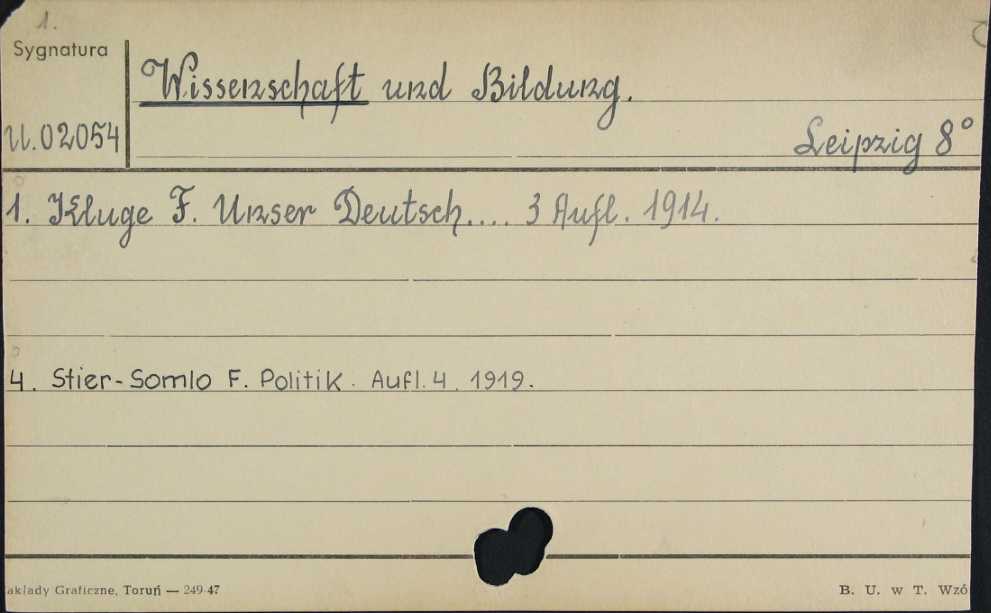 1.
Sygnatura
Wissenschaft und Bildung.
U.02054
Leipzig 8°
1. Kluge F. Unser Deutsch.... 3 Aufl. 1914.
4. Stier-Somlo F. Politik. Aufl. 4. 1919.
akłady Graficzne, Toruń — 249-47
B. U. w T. Wzó